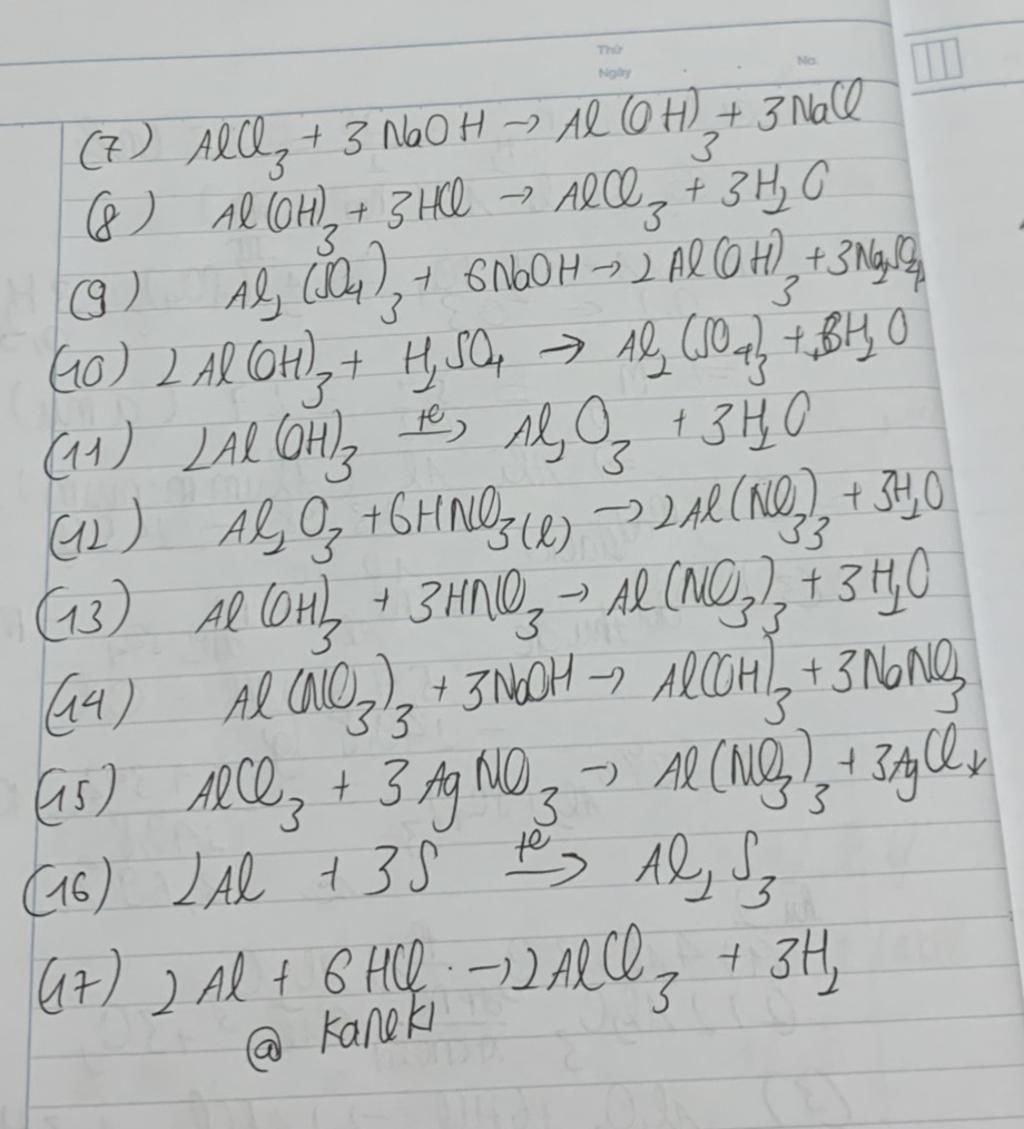 Thứ
Ngày
No.
(7) AlCl₃ + 3NaOH → Al(OH)₃ + 3NaCl
(8) Al(OH)₃ + 3HCl → AlCl₃ + 3H₂O
(9) Al₂(SO₄)₃ + 6NaOH → 2Al(OH)₃ + 3Na₂SO₄
(10) 2Al(OH)₃ + H₂SO₄ → Al₂(SO₄)₃ + 6H₂O
(11) 2Al(OH)₃ t° → Al₂O₃ + 3H₂O
(12) Al₂O₃ + 6HNO₃(l) → 2Al(NO₃)₃ + 3H₂O
(13) Al(OH)₃ + 3HNO₃ → Al(NO₃)₃ + 3H₂O
(14) Al(NO₃)₃ + 3NaOH → Al(OH)₃ + 3NaNO₃
(15) AlCl₃ + 3AgNO₃ → Al(NO₃)₃ + 3AgCl↓
(16) 2Al + 3S t° → Al₂S₃
(17) 2Al + 6HCl → 2AlCl₃ + 3H₂
@ Kaneki